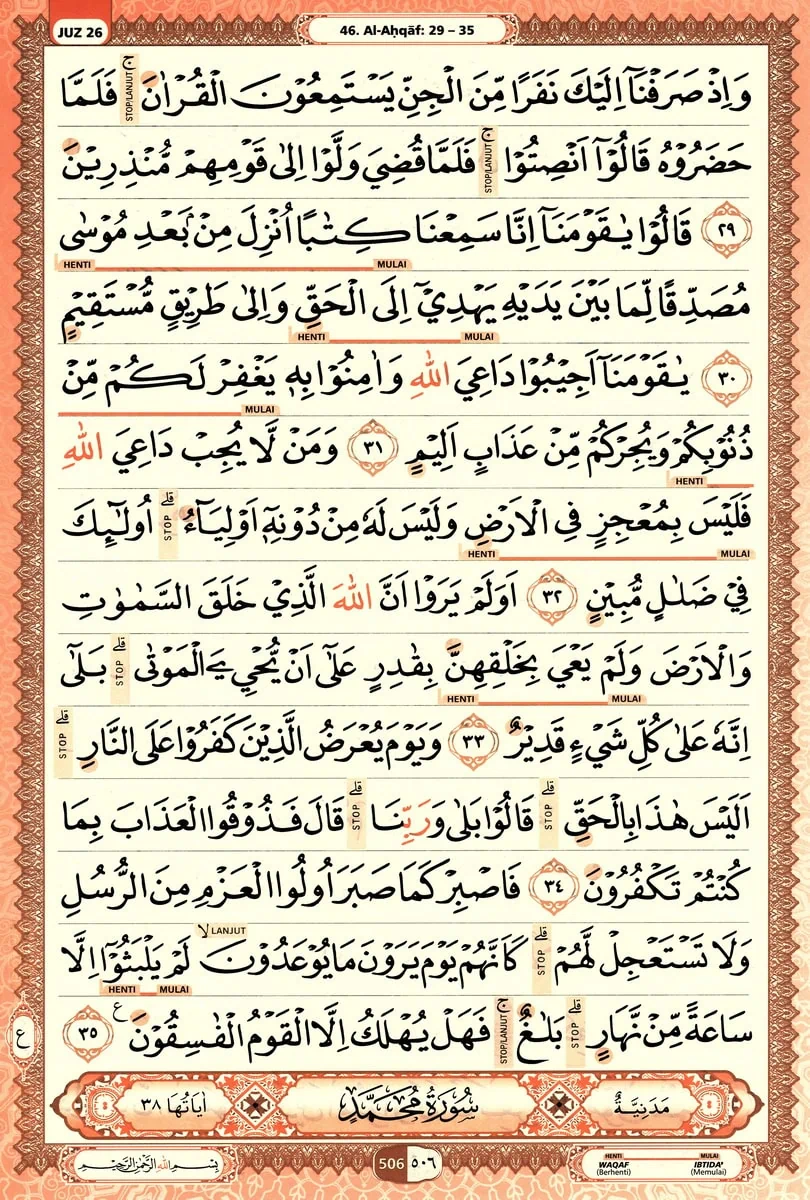 JUZ 26
46. Al-Aḥqāf: 29 – 35
وَاِذْ صَرَفْنَآ اِلَيْكَ نَفَرًا مِّنَ الْجِنِّ يَسْتَمِعُوْنَ الْقُرْاٰنَۚ STOP/LANJUT فَلَمَّا
حَضَرُوْهُ قَالُوْٓا اَنْصِتُوْاۚ STOP/LANJUT فَلَمَّا قُضِيَ وَلَّوْا اِلٰى قَوْمِهِمْ مُّنْذِرِيْنَ
٢٩ قَالُوْا يٰقَوْمَنَآ اِنَّا سَمِعْنَا كِتٰبًا اُنْزِلَ مِنْۢ بَعْدِ مُوْسٰى
MULAI HENTI
مُصَدِّقًا لِّمَا بَيْنَ يَدَيْهِ يَهْدِيْٓ اِلَى الْحَقِّ وَاِلٰى طَرِيْقٍ مُّسْتَقِيْمٍ
MULAI HENTI
٣٠ يٰقَوْمَنَآ اَجِيْبُوْا دَاعِيَ اللّٰهِ وَاٰمِنُوْا بِهٖ يَغْفِرْ لَكُمْ مِّنْ
MULAI
ذُنُوْبِكُمْ وَيُجِرْكُمْ مِّنْ عَذَابٍ اَلِيْمٍ ٣١ وَمَنْ لَّا يُجِبْ دَاعِيَ اللّٰهِ
HENTI
فَلَيْسَ بِمُعْجِزٍ فِى الْاَرْضِ وَلَيْسَ لَهٗ مِنْ دُوْنِهٖٓ اَوْلِيَاۤءُۗ STOP اُولٰۤىِٕكَ
MULAI HENTI
فِيْ ضَلٰلٍ مُّبِيْنٍ ٣٢ اَوَلَمْ يَرَوْا اَنَّ اللّٰهَ الَّذِيْ خَلَقَ السَّمٰوٰتِ
وَالْاَرْضَ وَلَمْ يَعْيَ بِخَلْقِهِنَّ بِقٰدِرٍ عَلٰٓى اَنْ يُّحْيِ يَ الْمَوْتٰىۗ STOP بَلٰٓى
MULAI HENTI
اِنَّهٗ عَلٰى كُلِّ شَيْءٍ قَدِيْرٌ ٣٣ وَيَوْمَ يُعْرَضُ الَّذِيْنَ كَفَرُوْا عَلَى النَّارِۗ STOP
اَلَيْسَ هٰذَا بِالْحَقِّۗ STOP قَالُوْا بَلٰى وَرَبِّنَاۗ STOP قَالَ فَذُوْقُوا الْعَذَابَ بِمَا
كُنْتُمْ تَكْفُرُوْنَ ٣٤ فَاصْبِرْ كَمَا صَبَرَ اُولُوا الْعَزْمِ مِنَ الرُّسُلِ
وَلَا تَسْتَعْجِلْ لَّهُمْۗ STOP كَاَنَّهُمْ يَوْمَ يَرَوْنَ مَا يُوْعَدُوْنَۙ LANJUT لَمْ يَلْبَثُوْٓا اِلَّا
MULAI HENTI
سَاعَةً مِّنْ نَّهَارٍۗ STOP بَلٰغٌۚ STOP/LANJUT فَهَلْ يُهْلَكُ اِلَّا الْقَوْمُ الْفٰسِقُوْنَ ࣖ ٣٥
ع
مَدَنِيَّةٌ سُوْرَةُ مُحَمَّدٍ اٰيَاتُهَا ٣٨
بِسْمِ اللّٰهِ الرَّحْمٰنِ الرَّحِيْمِ
506 ٥٠٦
HENTI MULAI
WAQAF IBTIDA'
(Berhenti) (Memulai)